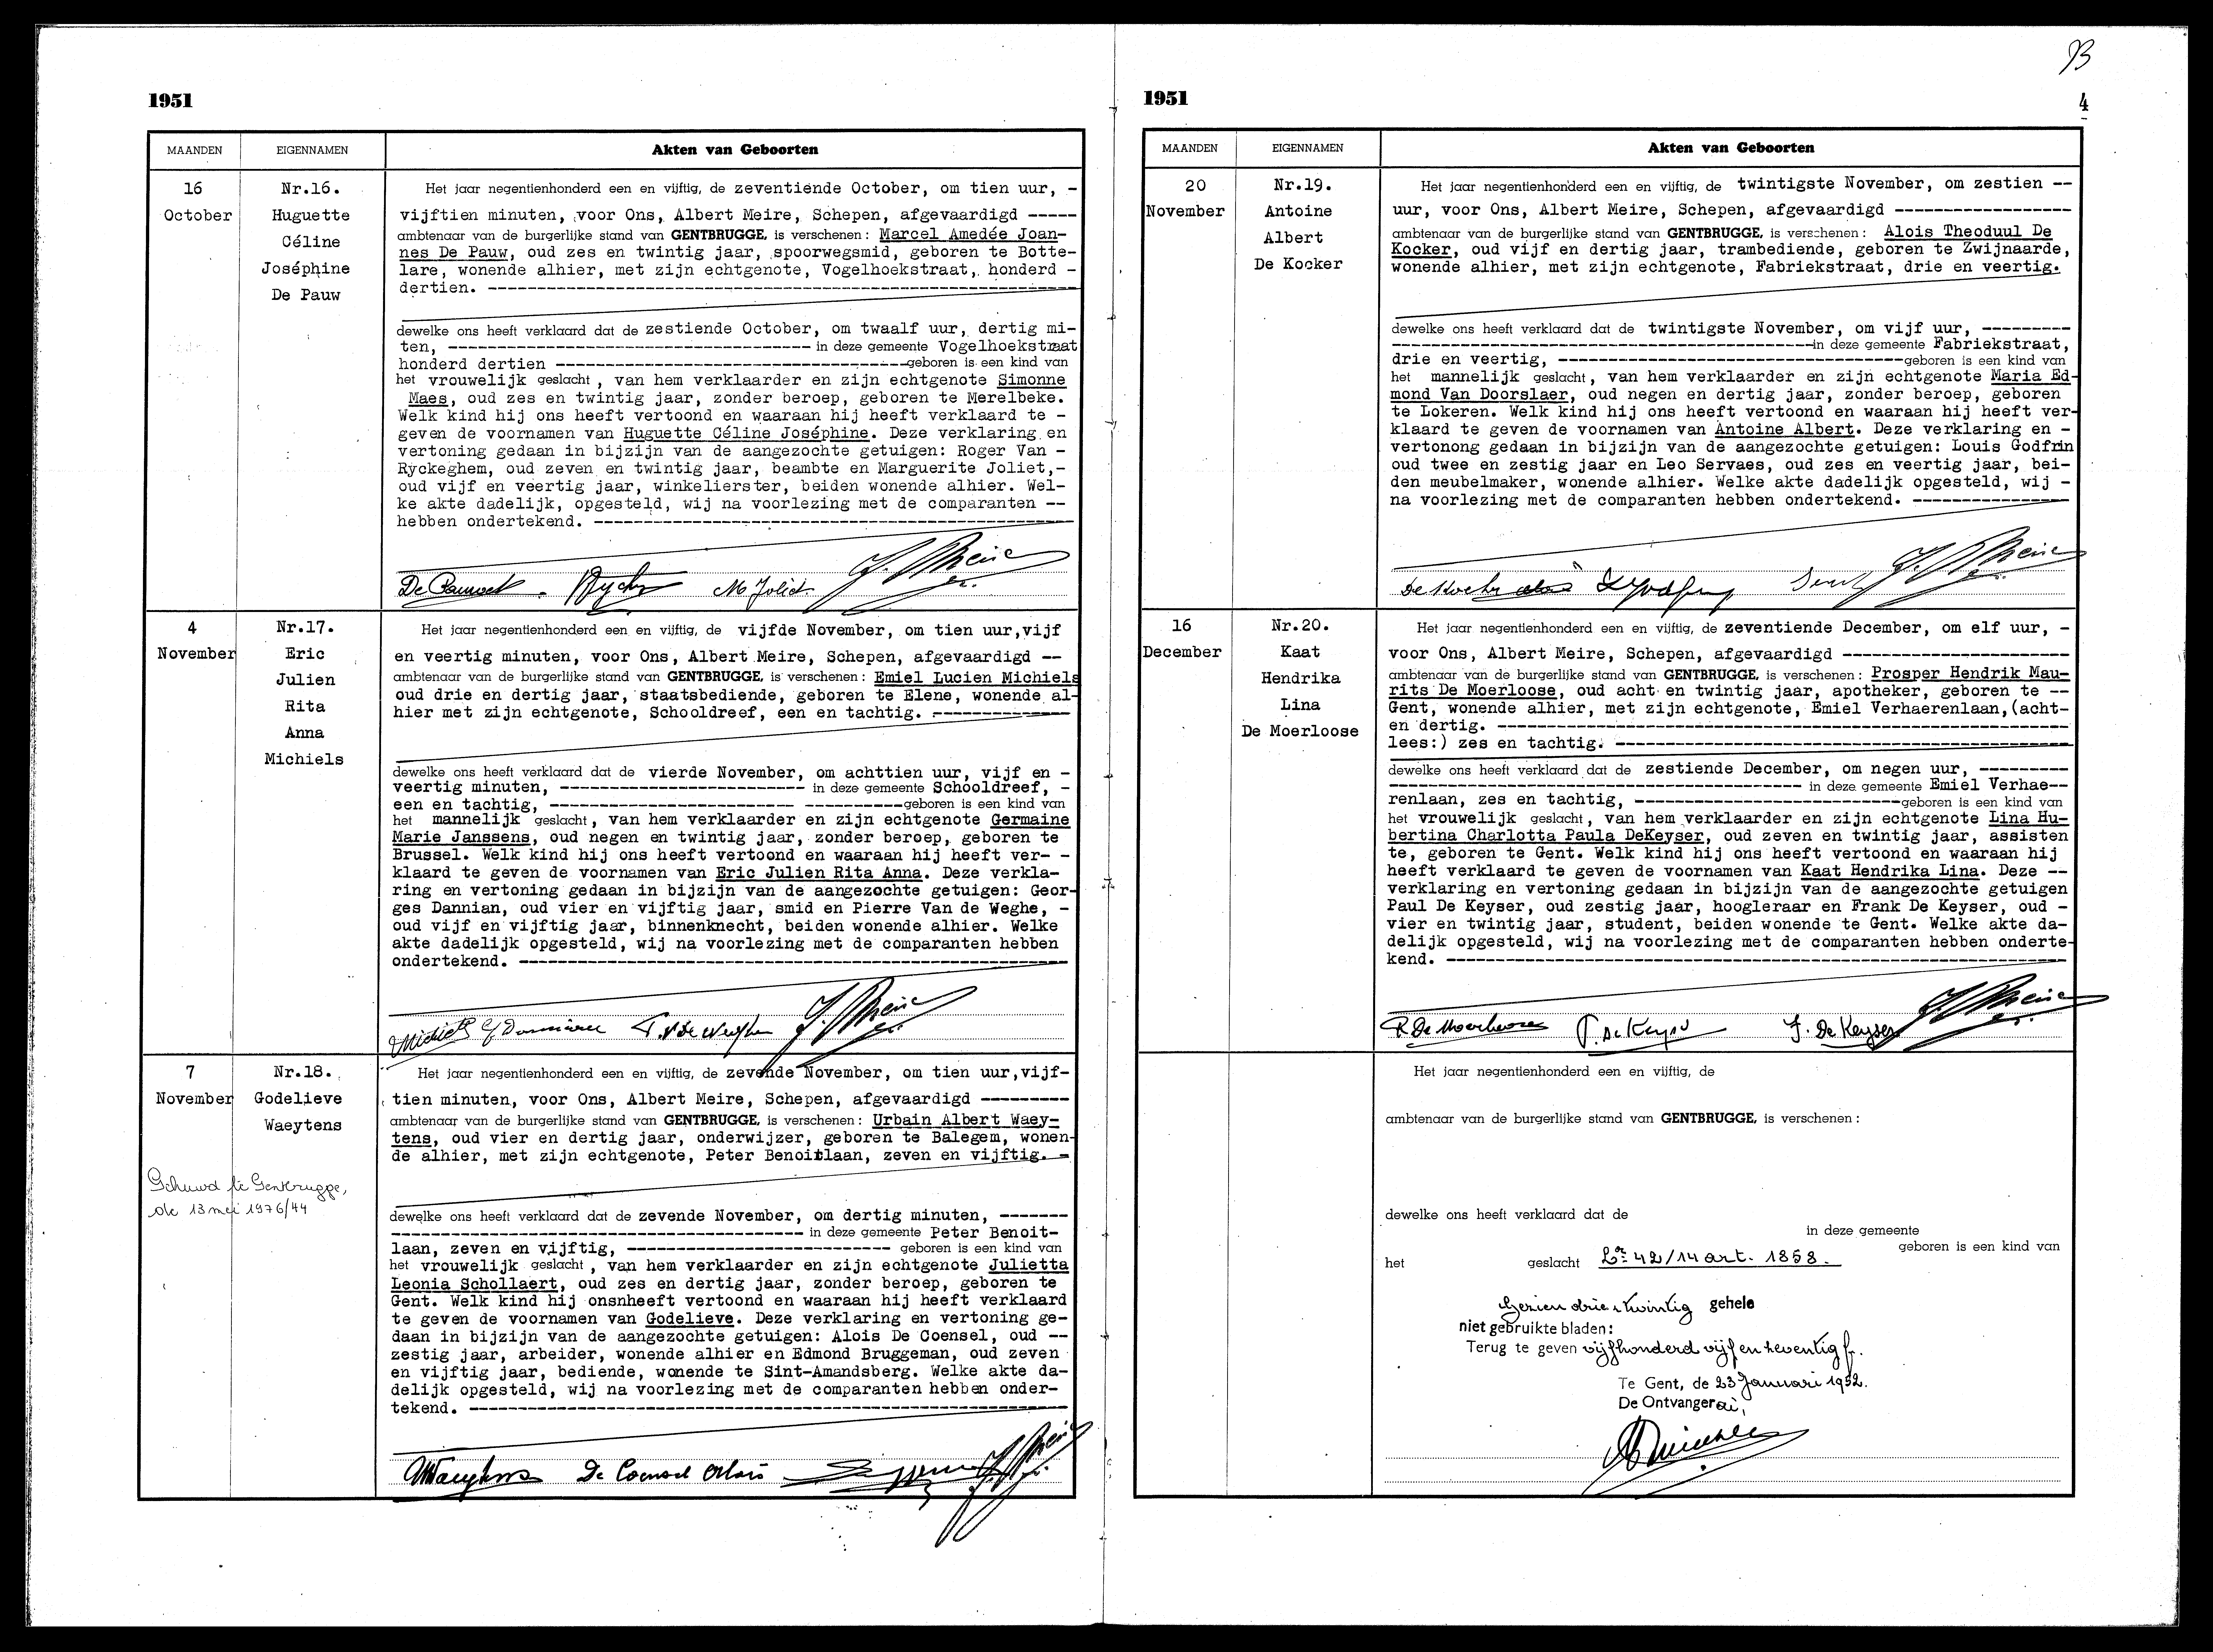 1951
MAANDEN EIGENNAMEN Akten van Geboorten
16 October
Nr.16.
Huguette
Céline
Joséphine
De Pauw
Het jaar negentienhonderd een en vijftig, de zeventiende October, om tien uur, -
vijftien minuten, voor Ons, Albert Meire, Schepen, afgevaardigd -----
ambtenaar van de burgerlijke stand van GENTBRUGGE, is verschenen: Marcel Amedée Joan-
nes De Pauw, oud zes en twintig jaar, spoorwegsmid, geboren te Botte-
lare, wonende alhier, met zijn echtgenote, Vogelhoekstraat, honderd -
dertien. ----------
dewelke ons heeft verklaard dat de zestiende October, om twaalf uur, dertig mi-
ten, ---------- in deze gemeente Vogelhoekstraat
honderd dertien ---------- geboren is een kind van
het vrouwelijk geslacht, van hem verklaarder en zijn echtgenote Simonne
Maes, oud zes en twintig jaar, zonder beroep, geboren te Merelbeke.
Welk kind hij ons heeft vertoond en waaraan hij heeft verklaard te -
geven de voornamen van Huguette Céline Joséphine. Deze verklaring en
vertoning gedaan in bijzijn van de aangezochte getuigen: Roger Van -
Ryckeghem, oud zeven en twintig jaar, beambte en Marguerite Joliet,-
oud vijf en veertig jaar, winkelierster, beiden wonende alhier. Wel-
ke akte dadelijk, opgesteld, wij na voorlezing met de comparanten --
hebben ondertekend. ----------
M Joliet
4 November
Nr.17.
Eric
Julien
Rita
Anna
Michiels
Het jaar negentienhonderd een en vijftig, de vijfde November, om tien uur,vijf
en veertig minuten, voor Ons, Albert Meire, Schepen, afgevaardigd --
ambtenaar van de burgerlijke stand van GENTBRUGGE, is verschenen: Emiel Lucien Michiels
oud drie en dertig jaar, staatsbediende, geboren te Elene, wonende al-
hier met zijn echtgenote, Schooldreef, een en tachtig. ----------
dewelke ons heeft verklaard dat de vierde November, om achttien uur, vijf en -
veertig minuten, ---------- in deze gemeente Schooldreef, -
een en tachtig, ---------- geboren is een kind van
het mannelijk geslacht, van hem verklaarder en zijn echtgenote Germaine
Marie Janssens, oud negen en twintig jaar, zonder beroep, geboren te
Brussel. Welk kind hij ons heeft vertoond en waaraan hij heeft ver- -
klaard te geven de voornamen van Eric Julien Rita Anna. Deze verkla-
ring en vertoning gedaan in bijzijn van de aangezochte getuigen: Geor-
ges Dannian, oud vier en vijftig jaar, smid en Pierre Van de Weghe, -
oud vijf en vijftig jaar, binnenknecht, beiden wonende alhier. Welke
akte dadelijk opgesteld, wij na voorlezing met de comparanten hebben
ondertekend. ----------
Michiels
7 November
Nr.18.
Godelieve
Waeytens
Gehuwd te Gentbrugge,
de 13 mei 1976/44
Het jaar negentienhonderd een en vijftig, de zevende November, om tien uur,vijf-
tien minuten, voor Ons, Albert Meire, Schepen, afgevaardigd ---------
ambtenaar van de burgerlijke stand van GENTBRUGGE, is verschenen: Urbain Albert Waey-
tens, oud vier en dertig jaar, onderwijzer, geboren te Balegem, wonen-
de alhier, met zijn echtgenote, Peter Benoitlaan, zeven en vijftig. -
dewelke ons heeft verklaard dat de zevende November, om dertig minuten, -------
---------- in deze gemeente Peter Benoit-
laan, zeven en vijftig, ---------- geboren is een kind van
het vrouwelijk geslacht, van hem verklaarder en zijn echtgenote Julietta
Leonia Schollaert, oud zes en dertig jaar, zonder beroep, geboren te
Gent. Welk kind hij onsnheeft vertoond en waaraan hij heeft verklaard
te geven de voornamen van Godelieve. Deze verklaring en vertoning ge-
daan in bijzijn van de aangezochte getuigen: Alois De Coensel, oud --
zestig jaar, arbeider, wonende alhier en Edmond Bruggeman, oud zeven
en vijftig jaar, bediende, wonende te Sint-Amandsberg. Welke akte da-
delijk opgesteld, wij na voorlezing met de comparanten hebben onder-
tekend. ----------
Waeytens De Coensel Alois
1951 4
MAANDEN EIGENNAMEN Akten van Geboorten
20 November
Nr.19.
Antoine
Albert
De Kocker
Het jaar negentienhonderd een en vijftig, de twintigste November, om zestien --
uur, voor Ons, Albert Meire, Schepen, afgevaardigd ----------
ambtenaar van de burgerlijke stand van GENTBRUGGE, is verschenen: Alois Theoduul De
Kocker, oud vijf en dertig jaar, trambediende, geboren te Zwijnaarde,
wonende alhier, met zijn echtgenote, Fabriekstraat, drie en veertig.
dewelke ons heeft verklaard dat de twintigste November, om vijf uur, ---------
---------- in deze gemeente Fabriekstraat,
drie en veertig, ---------- geboren is een kind van
het mannelijk geslacht, van hem verklaarder en zijn echtgenote Maria Ed-
mond Van Doorslaer, oud negen en dertig jaar, zonder beroep, geboren
te Lokeren. Welk kind hij ons heeft vertoond en waaraan hij heeft ver-
klaard te geven de voornamen van Antoine Albert. Deze verklaring en -
vertonong gedaan in bijzijn van de aangezochte getuigen: Louis Godfrin
oud twee en zestig jaar en Leo Servaes, oud zes en veertig jaar, bei-
den meubelmaker, wonende alhier. Welke akte dadelijk opgesteld, wij -
na voorlezing met de comparanten hebben ondertekend. ----------
16 December
Nr.20.
Kaat
Hendrika
Lina
De Moerloose
Het jaar negentienhonderd een en vijftig, de zeventiende December, om elf uur, -
voor Ons, Albert Meire, Schepen, afgevaardigd ----------
ambtenaar van de burgerlijke stand van GENTBRUGGE, is verschenen: Prosper Hendrik Mau-
rits De Moerloose, oud acht en twintig jaar, apotheker, geboren te --
Gent, wonende alhier, met zijn echtgenote, Emiel Verhaerenlaan,(acht-
en dertig. ----------
lees:) zes en tachtig. ----------
dewelke ons heeft verklaard dat de zestiende December, om negen uur, ---------
---------- in deze gemeente Emiel Verhae--
renlaan, zes en tachtig, ---------- geboren is een kind van
het vrouwelijk geslacht, van hem verklaarder en zijn echtgenote Lina Hu-
bertina Charlotta Paula DeKeyser, oud zeven en twintig jaar, assisten
te, geboren te Gent. Welk kind hij ons heeft vertoond en waaraan hij
heeft verklaard te geven de voornamen van Kaat Hendrika Lina. Deze --
verklaring en vertoning gedaan in bijzijn van de aangezochte getuigen
Paul De Keyser, oud zestig jaar, hoogleraar en Frank De Keyser, oud -
vier en twintig jaar, student, beiden wonende te Gent. Welke akte da-
delijk opgesteld, wij na voorlezing met de comparanten hebben onderte-
kend. ----------
P. De Moerloose P. De Keyser F. De Keyser
Het jaar negentienhonderd een en vijftig, de
ambtenaar van de burgerlijke stand van GENTBRUGGE, is verschenen:
dewelke ons heeft verklaard dat de
in deze gemeente
geboren is een kind van
het geslacht 42/14 art. 1858.
Gezien drie en twintig gehele
niet gebruikte bladen:
Terug te geven vijfhonderd vijf en zeventig fr.
Te Gent, de 23 Januari 1952.
De Ontvanger ai,